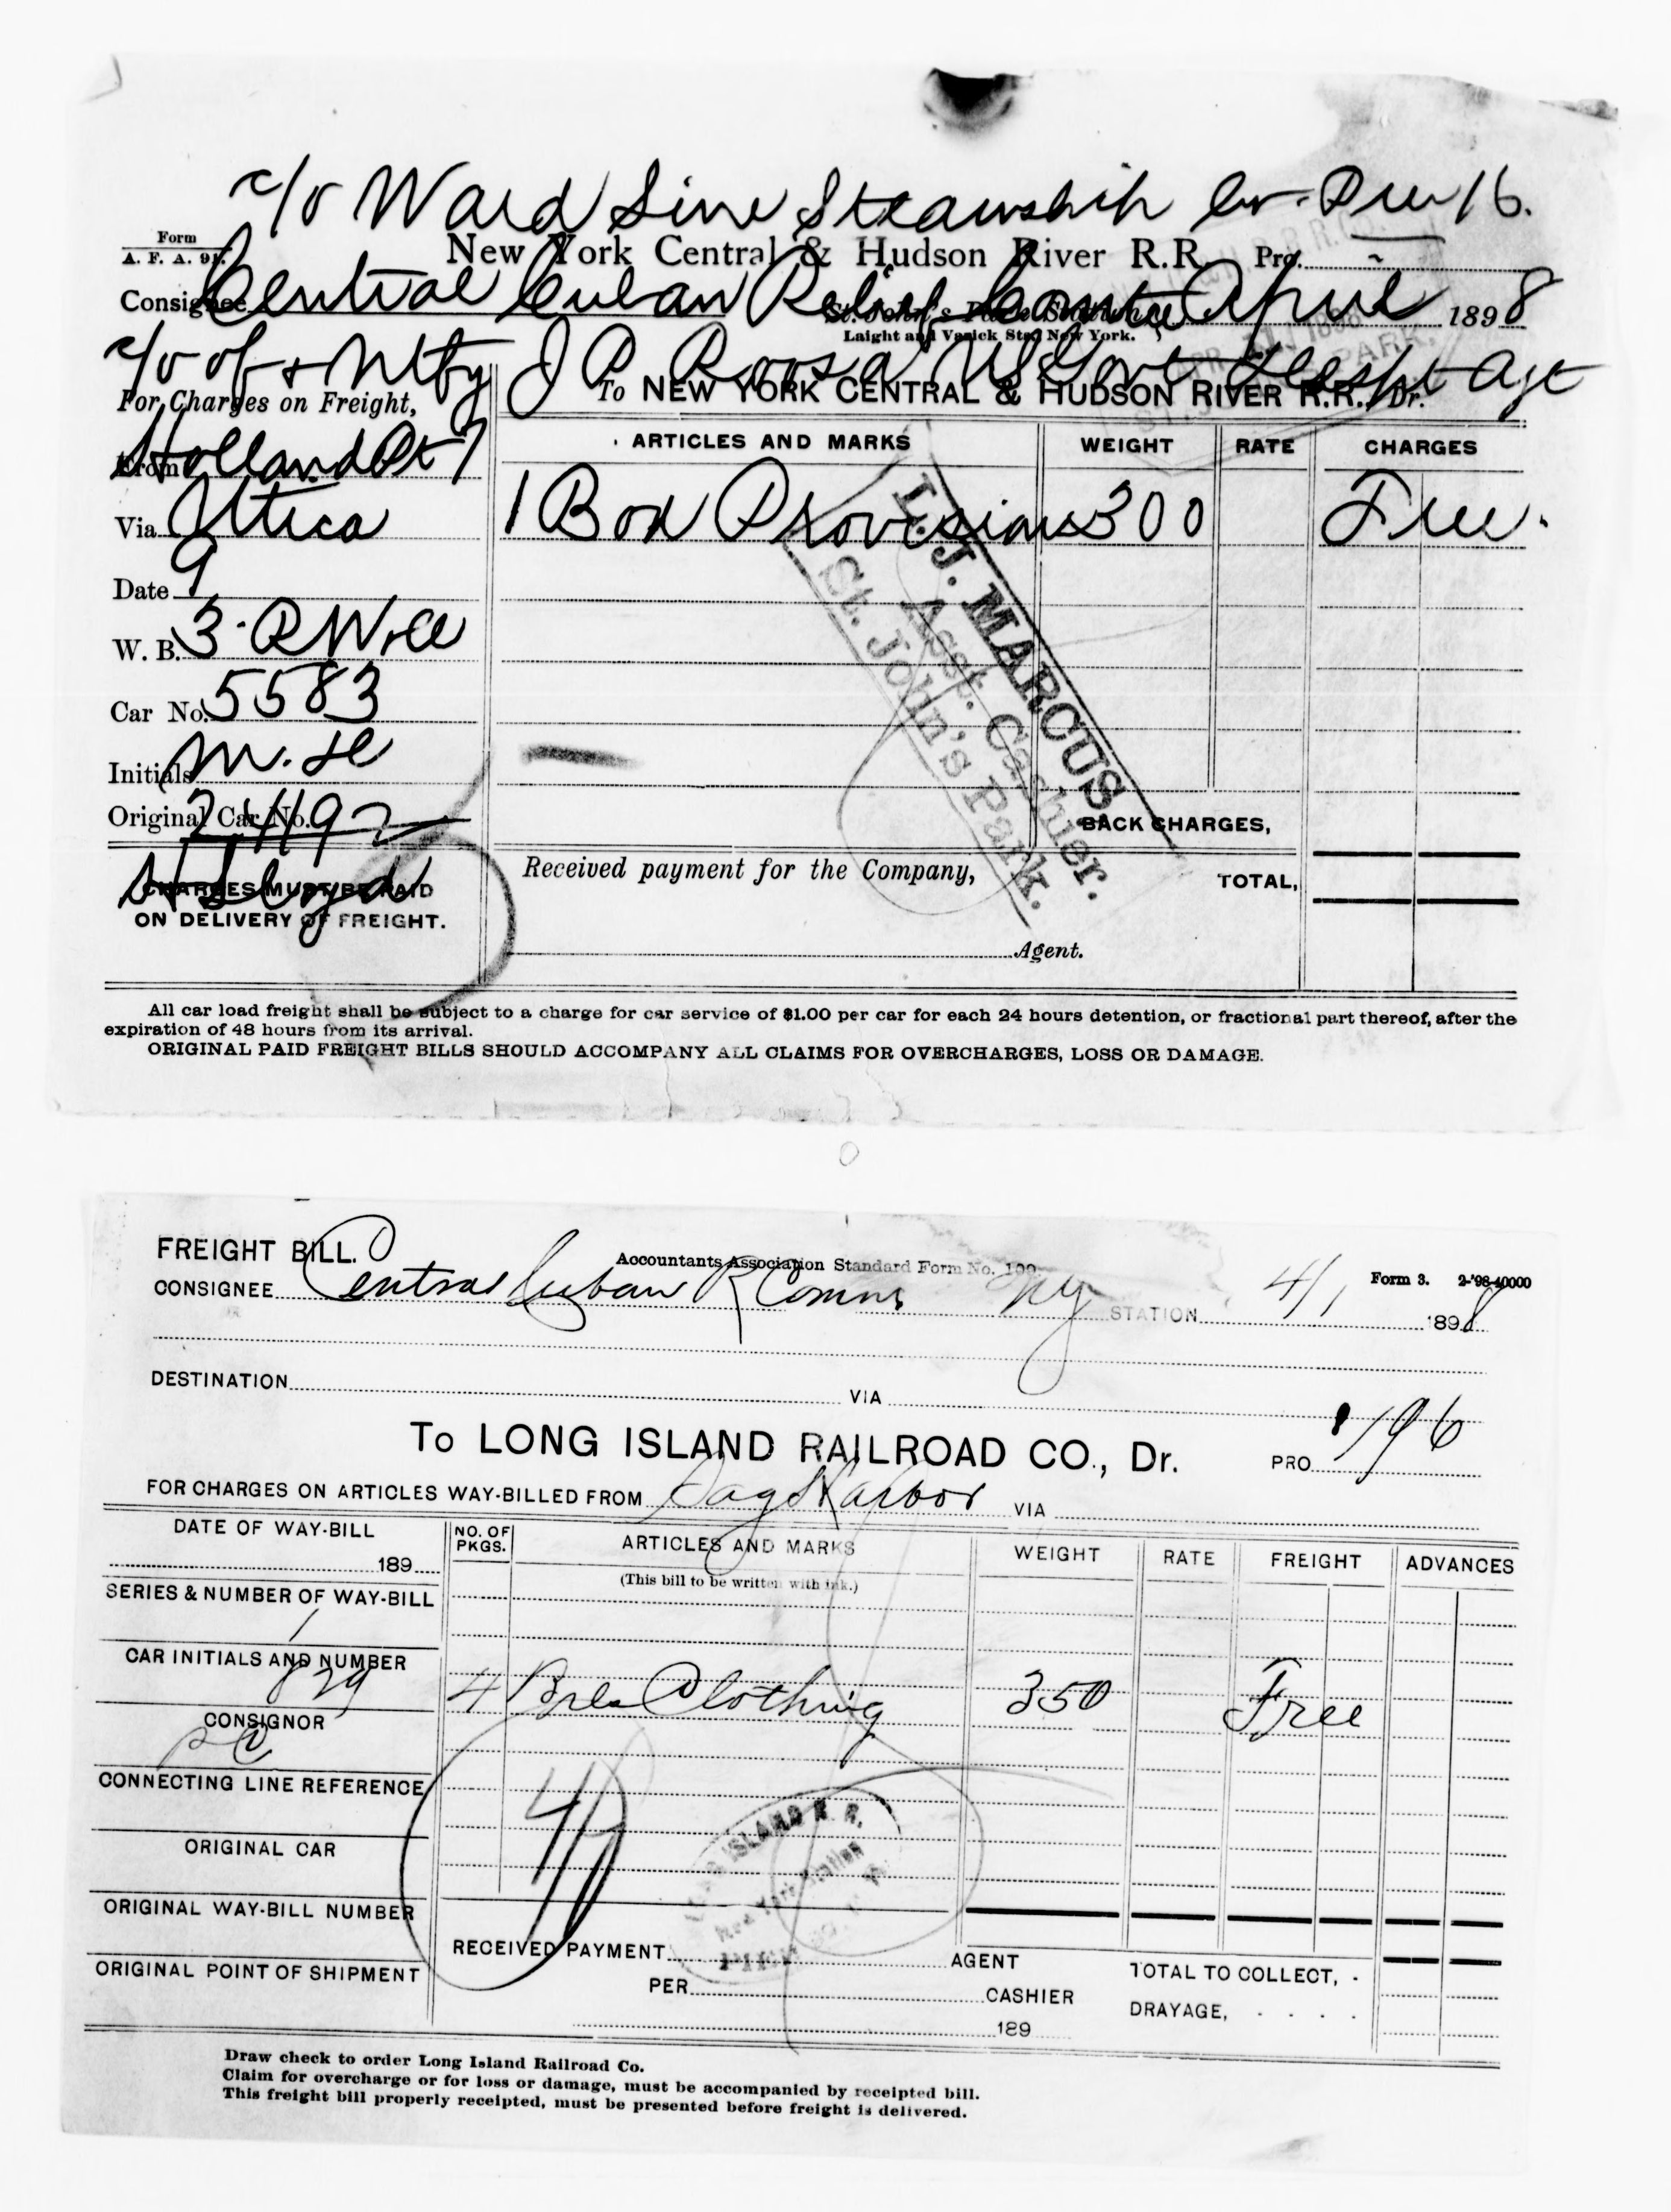 c/o Ward Line Steamship Pier 16.
Form
A. F. A. 91.
New York Central & Hudson River R.R. Pro.
Consignee Central Cuban Relief Comte April 1898
St. John's Park Station,
Laight and Varick Sts., New York.
c/o of J P Roosa US Govt Desp't Agt
For Charges on Freight,
To NEW YORK CENTRAL & HUDSON RIVER R.R., Dr.
From Holland Pt
ARTICLES AND MARKS WEIGHT RATE CHARGES
Via Utica
1 Box Provisions 300 Free.
Date 9
W. B. 3.
Car No. 5583
Initials
Original Car No. 24192
BACK CHARGES,
Lloyd
CHARGES MUST BE PAID
ON DELIVERY OF FREIGHT.
Received payment for the Company,
TOTAL,
Agent.
I. J. MARCUS
Asst. Cashier.
St. John's Park.
All car load freight shall be subject to a charge for car service of $1.00 per car for each 24 hours detention, or fractional part thereof, after the
expiration of 48 hours from its arrival.
ORIGINAL PAID FREIGHT BILLS SHOULD ACCOMPANY ALL CLAIMS FOR OVERCHARGES, LOSS OR DAMAGE.
FREIGHT BILL.
Accountants Association Standard Form No. 109
Form 3. 2-'98-40000
CONSIGNEE Central Cuban R Comm NY STATION 4/1 1898
DESTINATION VIA
To LONG ISLAND RAILROAD CO., Dr. PRO 196
FOR CHARGES ON ARTICLES WAY-BILLED FROM Sag Harbor VIA
DATE OF WAY-BILL
189
NO. OF PKGS. ARTICLES AND MARKS WEIGHT RATE FREIGHT ADVANCES
(This bill to be written with ink.)
SERIES & NUMBER OF WAY-BILL
1
CAR INITIALS AND NUMBER
829
4 Bxs Clothing 350 Free
CONSIGNOR
CONNECTING LINE REFERENCE
4
ORIGINAL CAR
LONG ISLAND R. R.
New York Station
ORIGINAL WAY-BILL NUMBER
RECEIVED PAYMENT AGENT
TOTAL TO COLLECT, -
ORIGINAL POINT OF SHIPMENT
PER CASHIER
DRAYAGE, - - - -
189
Draw check to order Long Island Railroad Co.
Claim for overcharge or for loss or damage, must be accompanied by receipted bill.
This freight bill properly receipted, must be presented before freight is delivered.